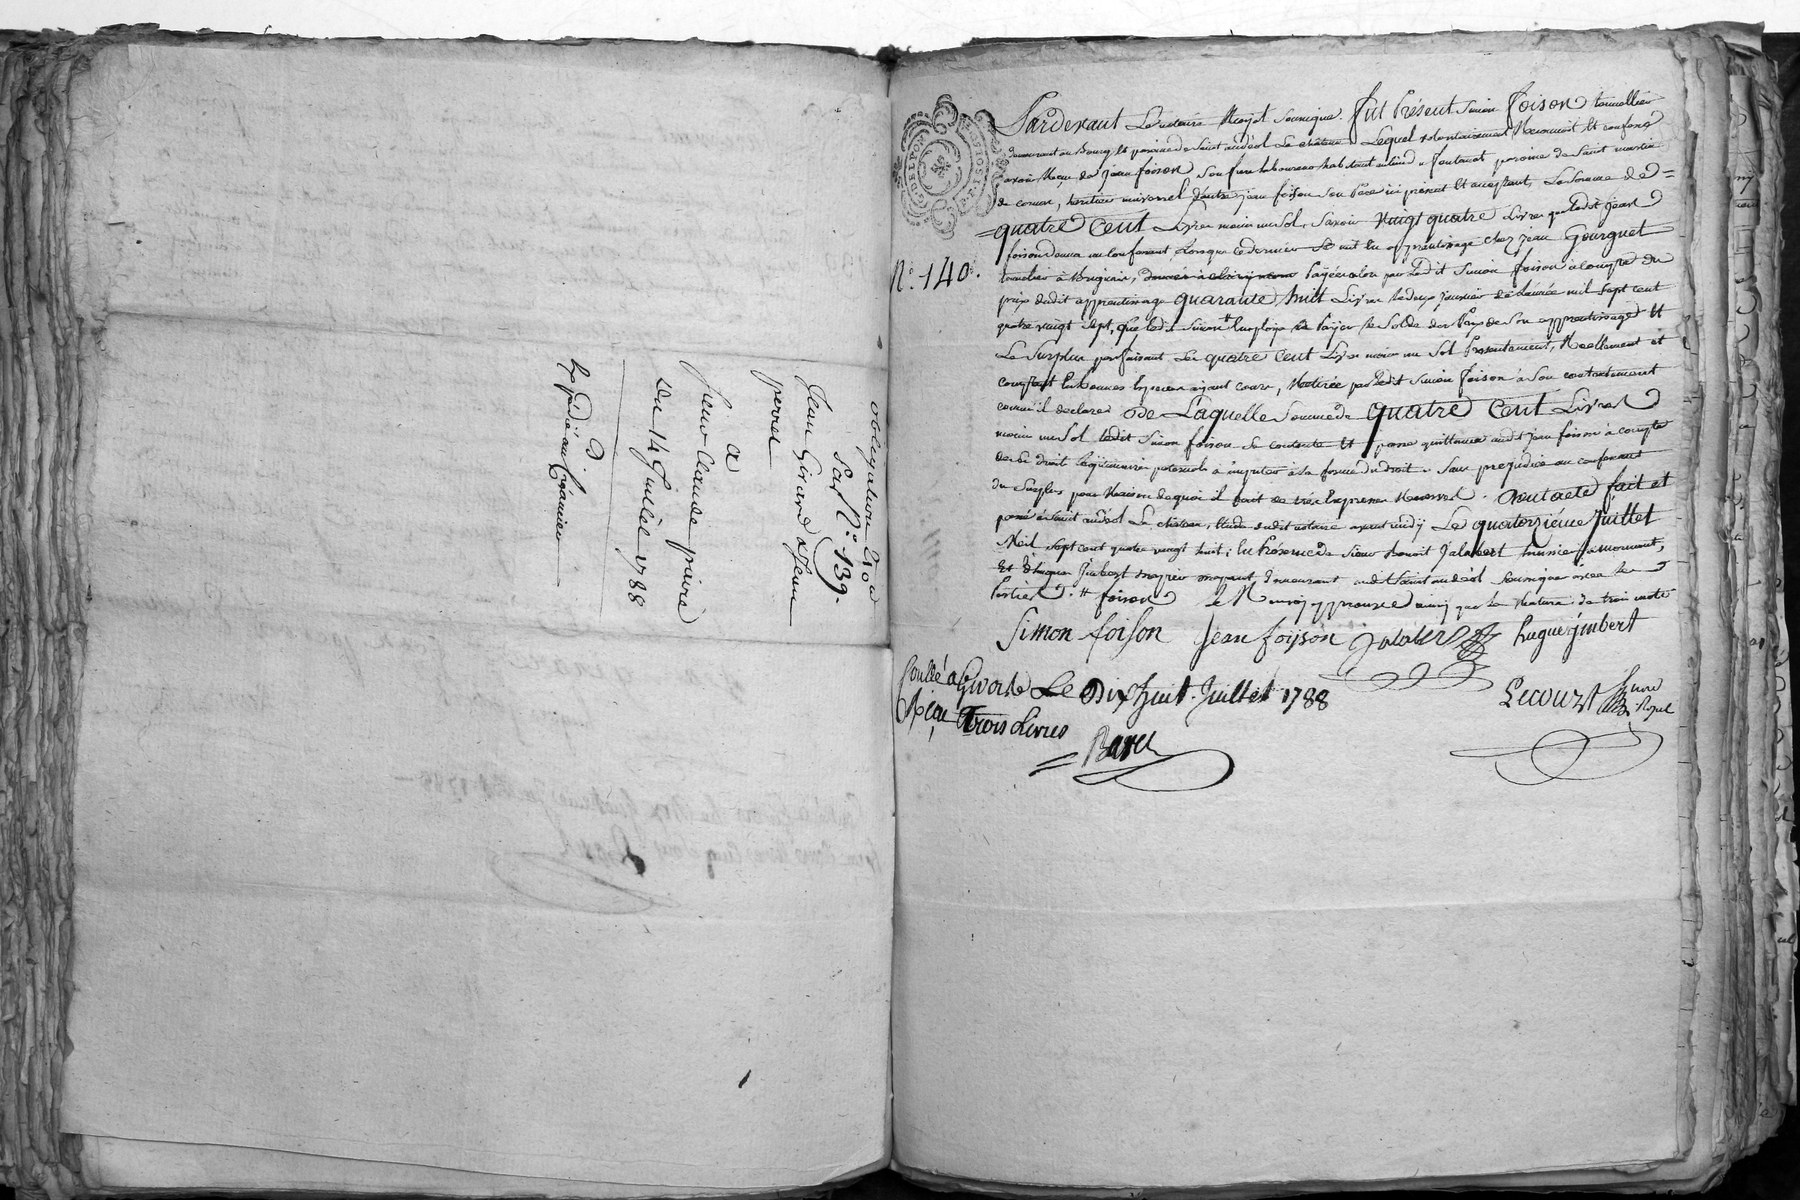 obligation 240 ₶
Sar N.° 139.
Jean Girard & Jeane
perret
a
Sieur Claude privre
Du 14 Juillet 1788
Expédié au Créancier
G. DE LYON
2. S. 1 SOL
N.° 140.
Pardevant Le notaire Royal Soussigné. Fut Présent Simon Foison tonnellier
demeurant au Bourg Et paroisse de Saint andéol Le château Lequel volontairement Reconnoit Et confesse
avoir Reçu de Jean foison, son frere laboureur habitant au lieu de fontanat paroisse de Saint martin
de cornas, heritier universel d'autre jean foison son Pere ici présent Et acceptant, La Somme de =
= quatre Cent Livres moins un Sol, Savoir Vingt quatre Livres que ledit Jean
foison donna au Confessant, lorsque ce dernier Se mit En apprentissage chez Jean Gourguet
tonnelier à Brignais, Payées alors par Ledit Simon foison à compte du
prix dudit apprentissage quarante huit Livres le deux janvier de L'année mil Sept cent
quatre vingt Sept, que led. Simon Employa à Payer le Solde du Prix de Son apprentissage Et
Le Surplus parfaisant Les quatre Cent Livres moins un Sol Présentement, Reellement et
comptant En bonnes Espèces ayant cours, Retirée par Ledit Simon Foison à Son contentement
comme il declare De Laquelle Somme de quatre Cent Livres
moins un Sol ledit Simon foison Se contente Et passe quittance audit jean foison à compte
de Ses droits Légitimaires paternels à imputer à la forme du droit, Sans prejudice au confessant
du Surplus pour Raison de quoi il fait de très Expresses Reserves. Dont acte fait et
passé à Saint andéol Le château, Etude dudit notaire avant midy Le quatorzième Juillet
Mil Sept cent quatre vingt huit; En Présence de Sieur Benoit Jalabert huissier à mornant,
Et d'hugue Jmbert demeurant audit Saint andéol Soussignés avec les
Parties. foison Le R approuvé ainsy que La Rature de trois mots
Simon foison Jean foison Jalabert hugue jmbert
Lecourt Notaire Royal
Conllé à Givors Le Dix huit Juillet 1788
Reçu Trois Livres
Barel